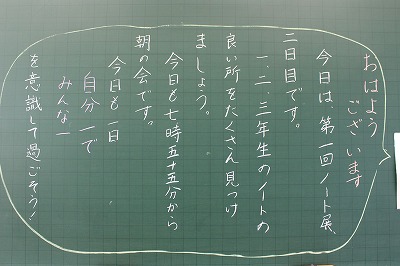 おはよう
ございます
今日は、第一回ノート展、
二日目です。
一、二、三年生のノートの
良い所をたくさん見つけ
ましょう。
今日も七時五十五分から
朝の会です。
今日も一日
自分一で
みんな一
を意識して過ごそう！